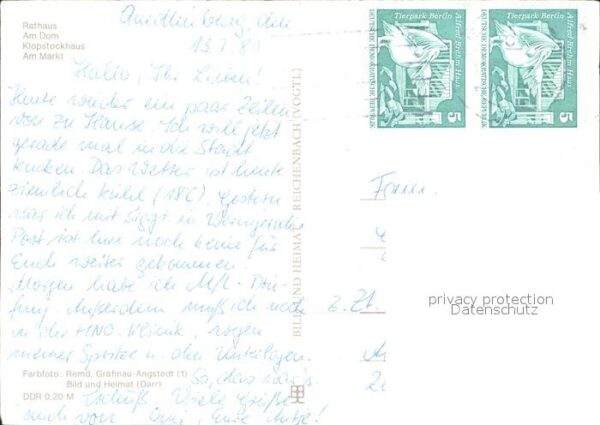 Rathaus
Am Dom
Klopstockhaus
Am Markt
Quedlinburg, den
13.7.81
Hallo, Ihr Lieben!
Heute wieder ein paar Zeilen
von zu Hause. Ich will jetzt
gerade mal in die Stadt
gucken. Das Wetter ist heute
ziemlich kühl (18C). Gestern
war ich mit in Wernigerode
Post ist hier noch keine für
Euch weiter gekommen.
Morgen habe ich M/L-Prü-
fung. Außerdem muß ich noch
in die HNO-Klinik, wegen
meiner Spritze u. den Unterlagen.
So, das war's.
Tschüß. Viele Grüße
auch von Omi, Eure
Farbfoto: Remd, Gräfinau-Angstedt (1)
Bild und Heimat (Darr)
DDR 0,20 M
BILD UND HEIMAT REICHENBACH (VOGTL)
Tierpark Berlin
Alfred Brehm Haus
DEUTSCHE DEMOKRATISCHE REPUBLIK
5
Tierpark Berlin
Alfred Brehm Haus
DEUTSCHE DEMOKRATISCHE REPUBLIK
5
z. Zt.
privacy protection
Datenschutz